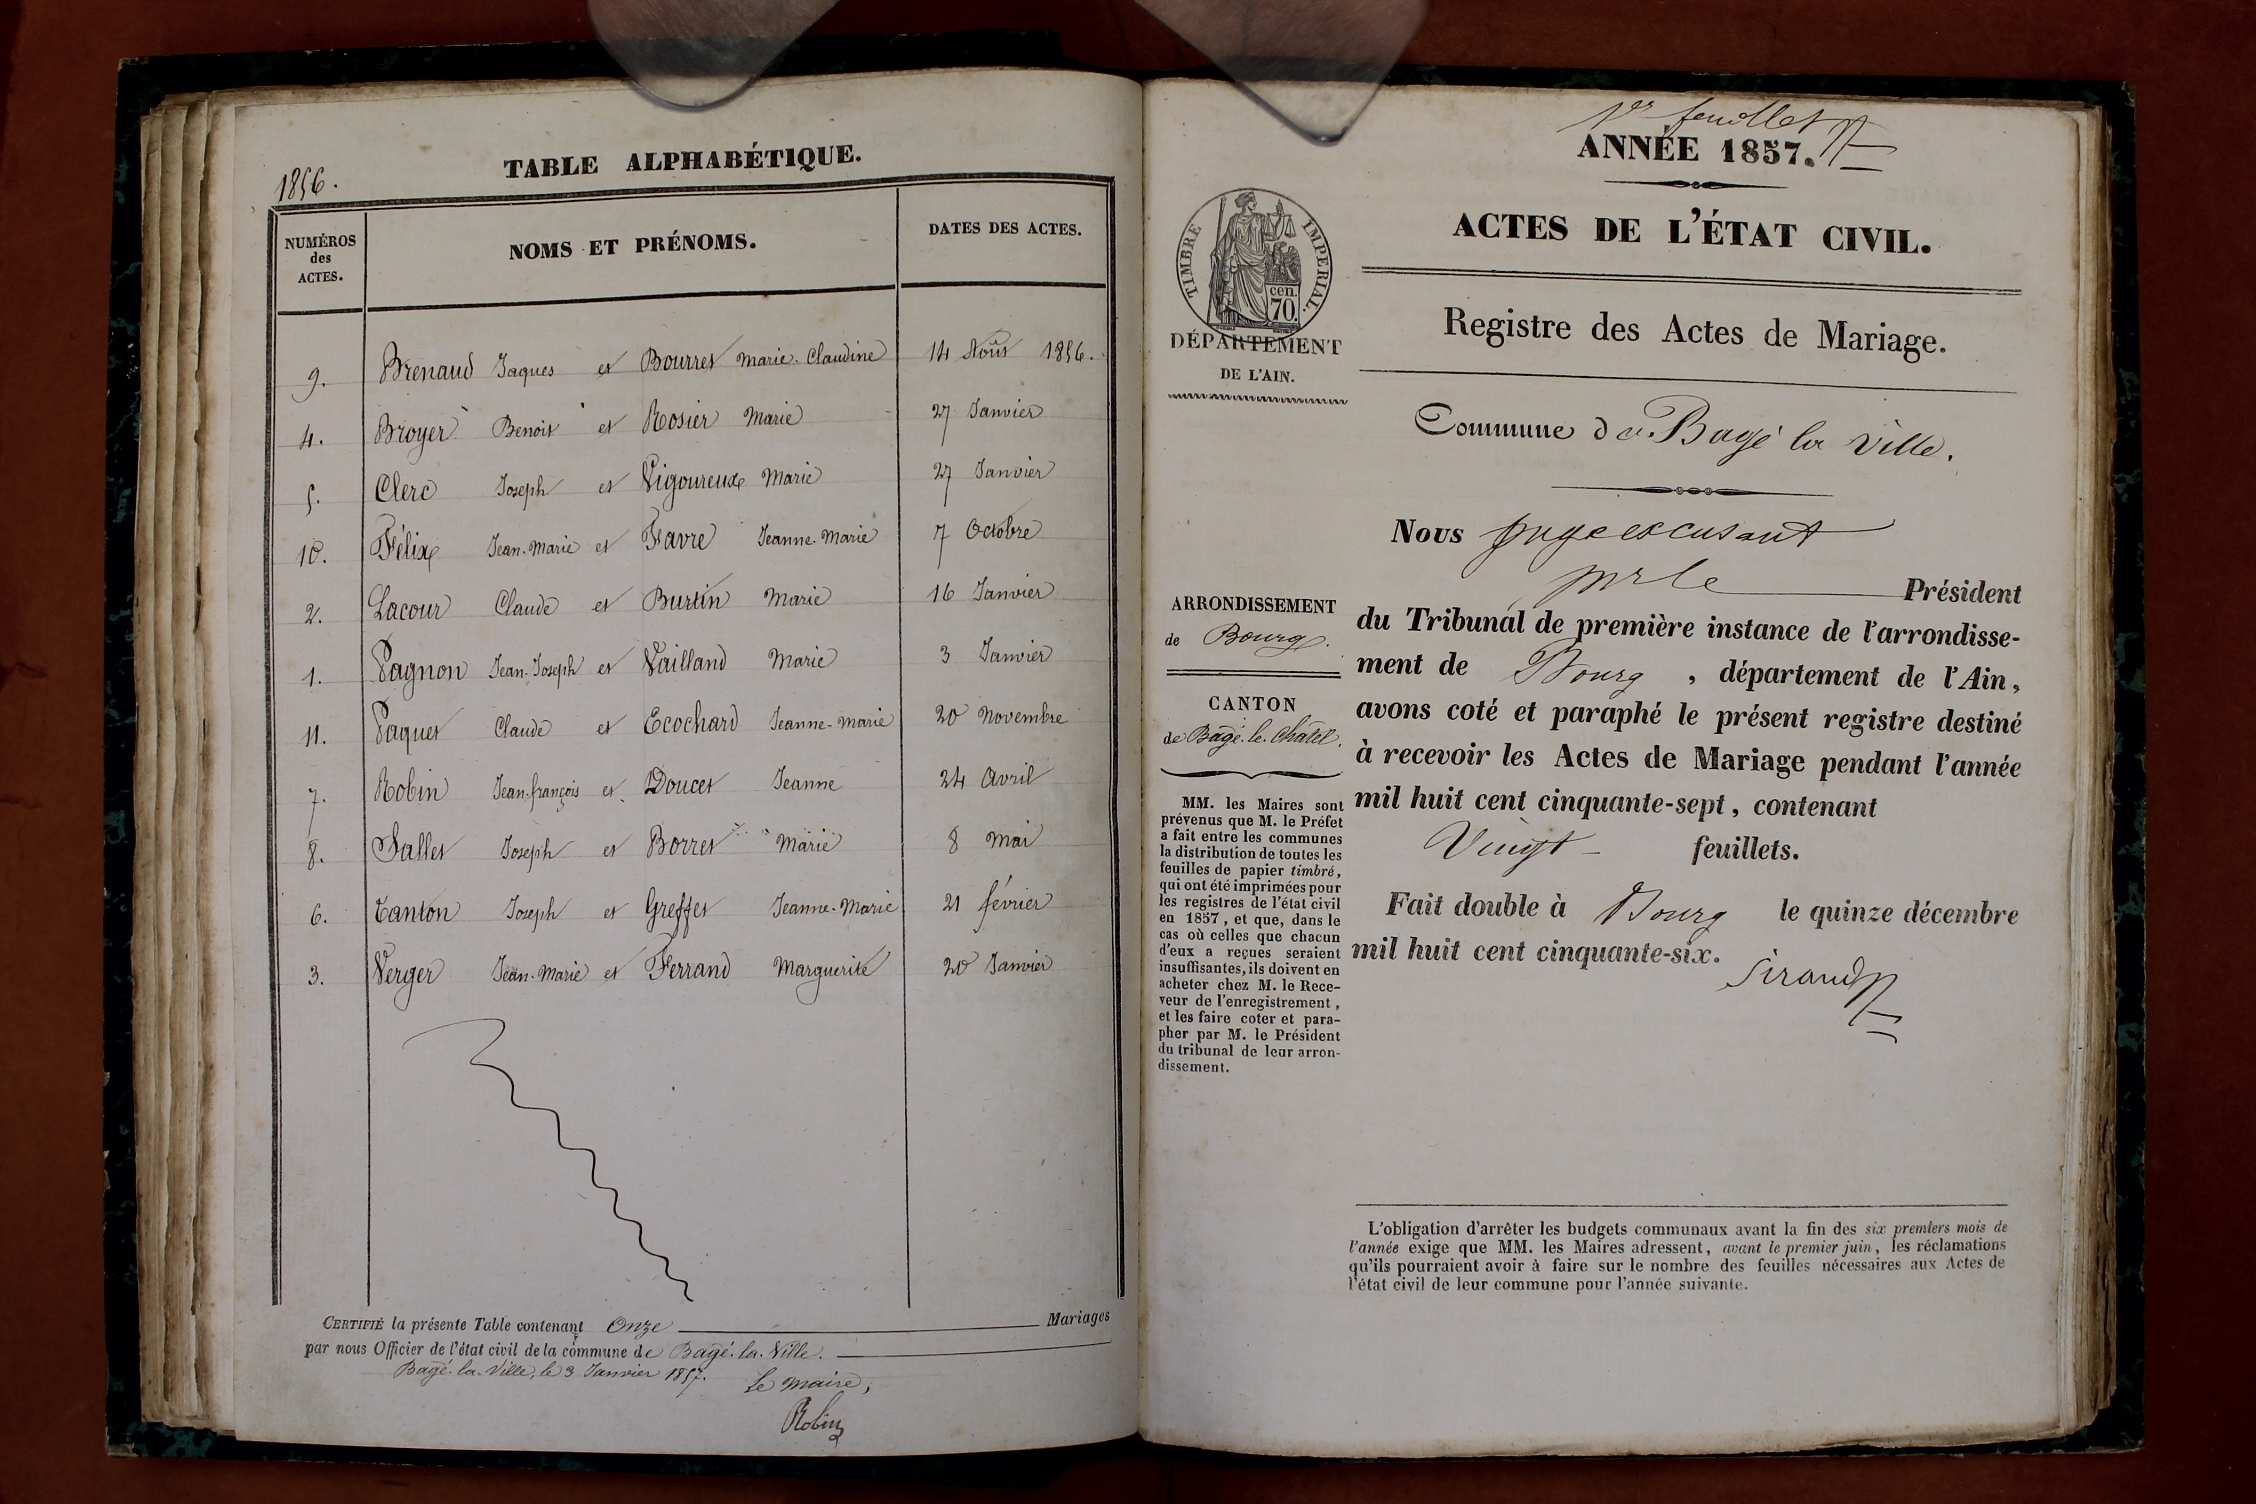 1856.
TABLE ALPHABÉTIQUE.
NUMÉROS
des
ACTES.
NOMS ET PRÉNOMS.
DATES DES ACTES.
9. Brenaud Jaques et Bourret Marie-Claudine 14 Août 1856.
4. Broyer Benoit et Rosier Marie 27 Janvier
5. Clerc Joseph et Vigoureux Marie 27 Janvier
10. Félix Jean-Marie et Favre Jeanne-Marie 7 Octobre
2. Lacour Claude et Burtin Marie 16 Janvier
1. Pagnon Jean-Joseph et Vailland Marie 3 Janvier
11. Paquet Claude et Ecochard Jeanne-Marie 20 Novembre
7. Robin Jean-françois et Doucet Jeanne 24 Avril
8. Sallet Joseph et Borret Marie 8 Mai
6. Tanton Joseph et Greffet Jeanne-Marie 21 février
3. Verger Jean-Marie et Ferrand Marguerite 20 Janvier
CERTIFIÉ la présente Table contenant Onze Mariages
par nous Officier de l'état civil de la commune de Bagé-la-Ville.
Bagé-la-Ville, le 3 Janvier 1857.
Le Maire,
Robin
1er feuillet
ANNÉE 1857.
ACTES DE L'ÉTAT CIVIL.
TIMBRE IMPERIAL.
cen.
70.
DÉPARTEMENT
DE L'AIN.
Registre des Actes de Mariage.
Commune de Bagé la Ville.
Nous juge excusant
mr le Président
du Tribunal de première instance de l'arrondisse-
ment de Bourg, département de l'Ain,
avons coté et paraphé le présent registre destiné
à recevoir les Actes de Mariage pendant l'année
mil huit cent cinquante-sept, contenant
Vingt feuillets.
Fait double à Bourg le quinze décembre
mil huit cent cinquante-six.
Sirand
ARRONDISSEMENT
de Bourg.
CANTON
de Bagé-le-Châtel.
MM. les Maires sont
prévenus que M. le Préfet
a fait entre les communes
la distribution de toutes les
feuilles de papier timbré,
qui ont été imprimées pour
les registres de l'état civil
en 1857, et que, dans le
cas où celles que chacun
d'eux a reçues seraient
insuffisantes, ils doivent en
acheter chez M. le Rece-
veur de l'enregistrement,
et les faire coter et para-
pher par M. le Président
du tribunal de leur arron-
dissement.
L'obligation d'arrêter les budgets communaux avant la fin des six premiers mois de
l'année exige que MM. les Maires adressent, avant le premier juin, les réclamations
qu'ils pourraient avoir à faire sur le nombre des feuilles nécessaires aux Actes de
l'état civil de leur commune pour l'année suivante.